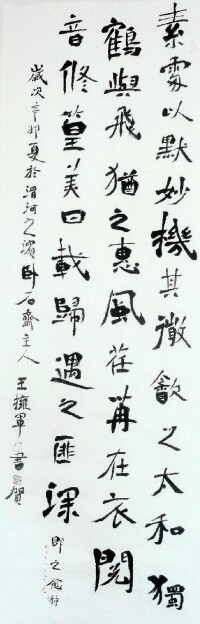 素處以默妙機其微飲之太和獨
鶴與飛猶之惠風荏苒在衣閱
音修篁美曰載歸遇之匪深即之愈稀
歲次辛卯夏於渭河之濱卧石齋主人王擁軍書賀